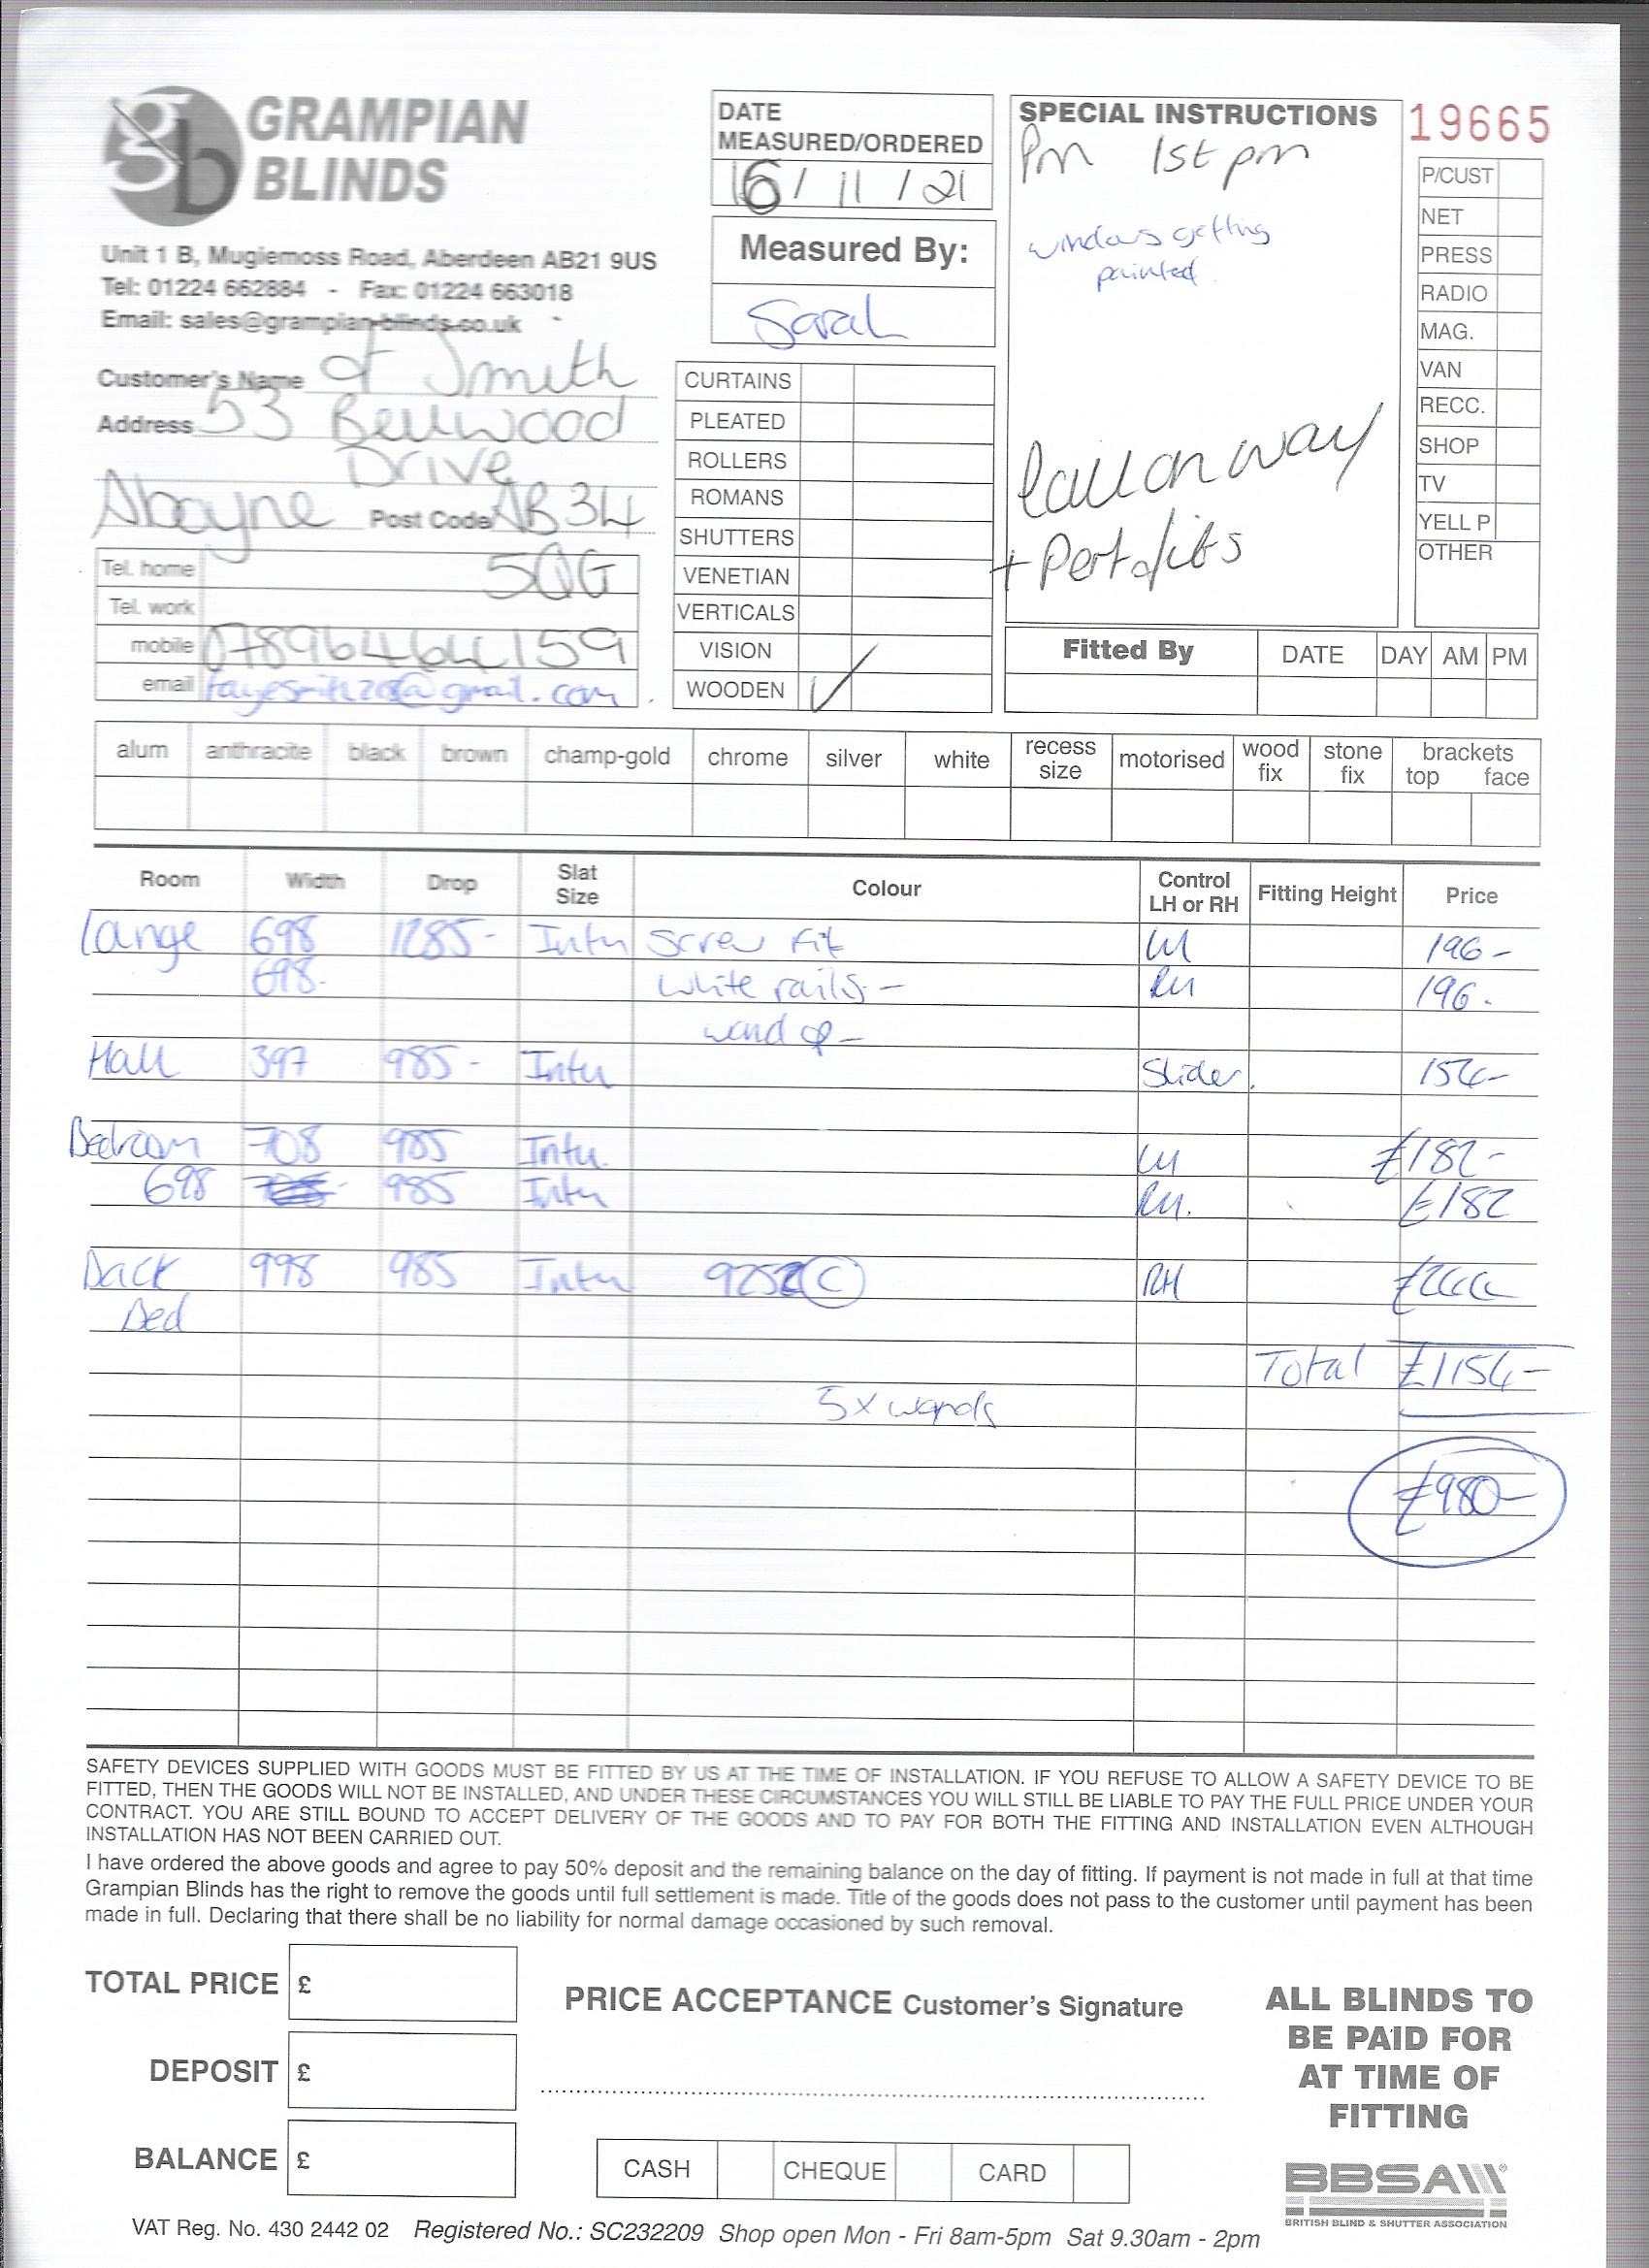 GRAMPIAN
BLINDS
Unit 1 B, Mugiemoss Road, Aberdeen AB21 9US
Tel: 01224 662884 - Fax: 01224 663018
Email: sales@grampian-blinds.co.uk
DATE
MEASURED/ORDERED
16/11/21
Measured By:
Sarah
SPECIAL INSTRUCTIONS
Pm 1st pm
windows getting
painted
Call on way
+ Perfofits
19665
P/CUST
NET
PRESS
RADIO
MAG.
VAN
RECC.
SHOP
TV
YELL P
OTHER
Customer's Name F Smith
Address 53 Bellwood
Drive
Aboyne Post Code AB34
5QG
Tel. home
Tel. work
mobile
email
CURTAINS
PLEATED
ROLLERS
ROMANS
SHUTTERS
VENETIAN
VERTICALS
VISION
WOODEN ✓
Fitted By DATE DAY AM PM
alum anthracite black brown champ-gold chrome silver white recess size motorised wood fix stone fix brackets top face
Room Width Drop Slat Size Colour Control LH or RH Fitting Height Price
Lounge 698 1285- Intu Screw Fit LH 196-
698- White rails - RH 196-
wand op-
Hall 397 985- Intu Slider 154-
Bedroom 708 985 Intu LH £182-
698 985 Intu RH. £182
Back 998 985 Intu 9252 C RH £244
Bed
Total £1154-
5x wands
£980-
SAFETY DEVICES SUPPLIED WITH GOODS MUST BE FITTED BY US AT THE TIME OF INSTALLATION. IF YOU REFUSE TO ALLOW A SAFETY DEVICE TO BE
FITTED, THEN THE GOODS WILL NOT BE INSTALLED, AND UNDER THESE CIRCUMSTANCES YOU WILL STILL BE LIABLE TO PAY THE FULL PRICE UNDER YOUR
CONTRACT. YOU ARE STILL BOUND TO ACCEPT DELIVERY OF THE GOODS AND TO PAY FOR BOTH THE FITTING AND INSTALLATION EVEN ALTHOUGH
INSTALLATION HAS NOT BEEN CARRIED OUT.
I have ordered the above goods and agree to pay 50% deposit and the remaining balance on the day of fitting. If payment is not made in full at that time
Grampian Blinds has the right to remove the goods until full settlement is made. Title of the goods does not pass to the customer until payment has been
made in full. Declaring that there shall be no liability for normal damage occasioned by such removal.
TOTAL PRICE £
DEPOSIT £
BALANCE £
PRICE ACCEPTANCE Customer's Signature
CASH CHEQUE CARD
ALL BLINDS TO
BE PAID FOR
AT TIME OF
FITTING
BBSA
BRITISH BLIND & SHUTTER ASSOCIATION
VAT Reg. No. 430 2442 02 Registered No.: SC232209 Shop open Mon - Fri 8am-5pm Sat 9.30am - 2pm